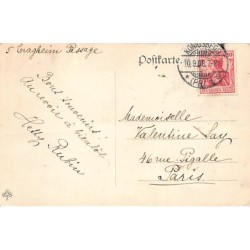 5 Tragheim Passage
Postkarte.
10.9.08.
Bons souvenirs!
Au revoir à bientôt
Helly Rubin
Mademoiselle
Valentine Say
46 rue Pigalle
Paris